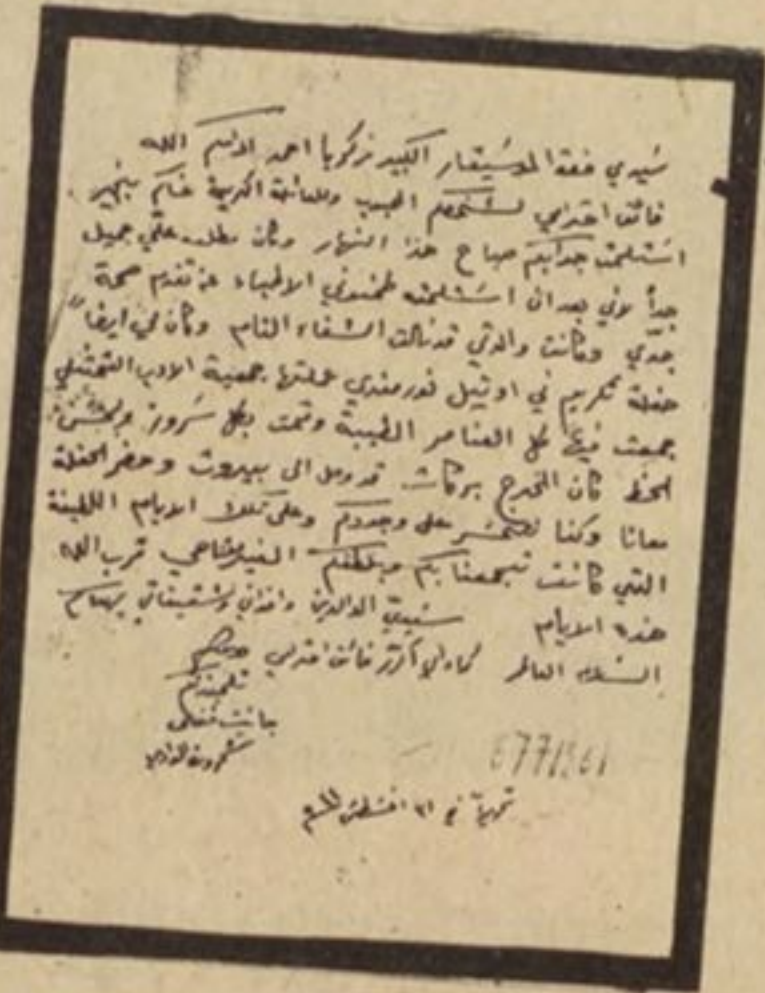 سيدي حضرة الموسيقار الكبير زكريا احمد الاكرم الله
فائق احترامي لشخصكم المحبوب وللعائلة الكريمة عساكم بخير
استلمت جوابكم صباح هذا النهار وكان علي جميل
جداً لاني بعد ان استلمته طمنوني الاطباء عن تقدم صحة
جدي وكانت والدتي قد نالت الشفاء التام وكان لي ايضاً
حفلة تكريم في اوتيل نورمندي عملتها جمعية الادب التمثيلي
جمعت فيها كل العناصر الطيبة وتمت بكل سرور ولحسن
الحظ كان المخرج بركات قد وصل الى بيروت وحضر الحفلة
معانا وكنا نتحسر على وجودكم وعلى تلك الايام اللطيفة
التي كانت تجمعنا بكم وبلطفكم الغير متناهي قرب الله
هذه الايام سيدتي الوالدة واخواني وشقيقاتي يهدوكم
السلام العاطر كما واني أكرر فائق احترامي
تلميذتكم
شحرورة الوادي
تحريراً في ٢١ اغسطس